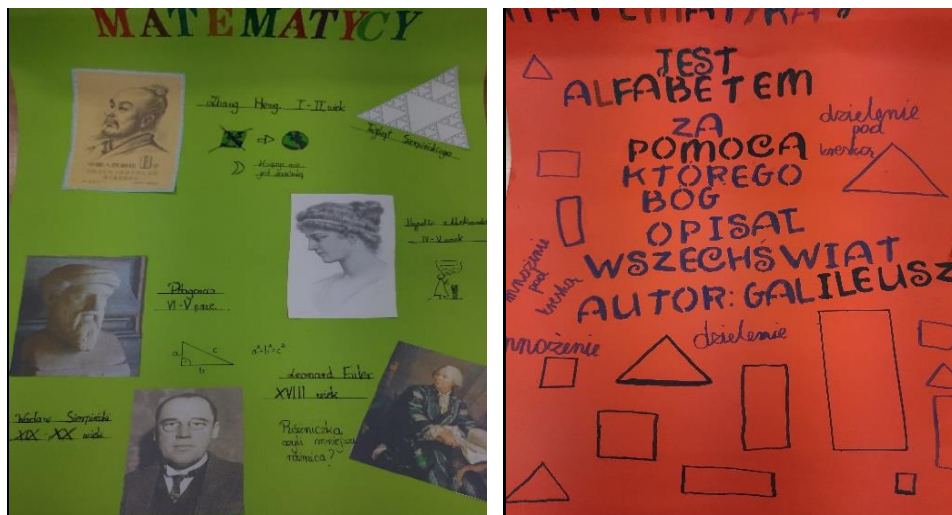 MATEMATYCY
Zhang Heng I-II wiek
Trójkąt Sierpińskiego
księżyc nie
jest
IV-V wiek
Pitagoras
VI-V p.n.e.
a
c
b
a²+b²=c²
Leonard Euler
XVIII wiek
Wacław Sierpiński
XIX-XX wiek
Różniczka,
czyli mniejsza
różnica?
JEST
ALFABETEM
ZA
POMOCĄ
KTÓREGO
BÓG
OPISAŁ
WSZECHŚWIAT
AUTOR: GALILEUSZ
dzielenie
pod
kreską
mnożenie
pod
kreską
mnożenie
dzielenie